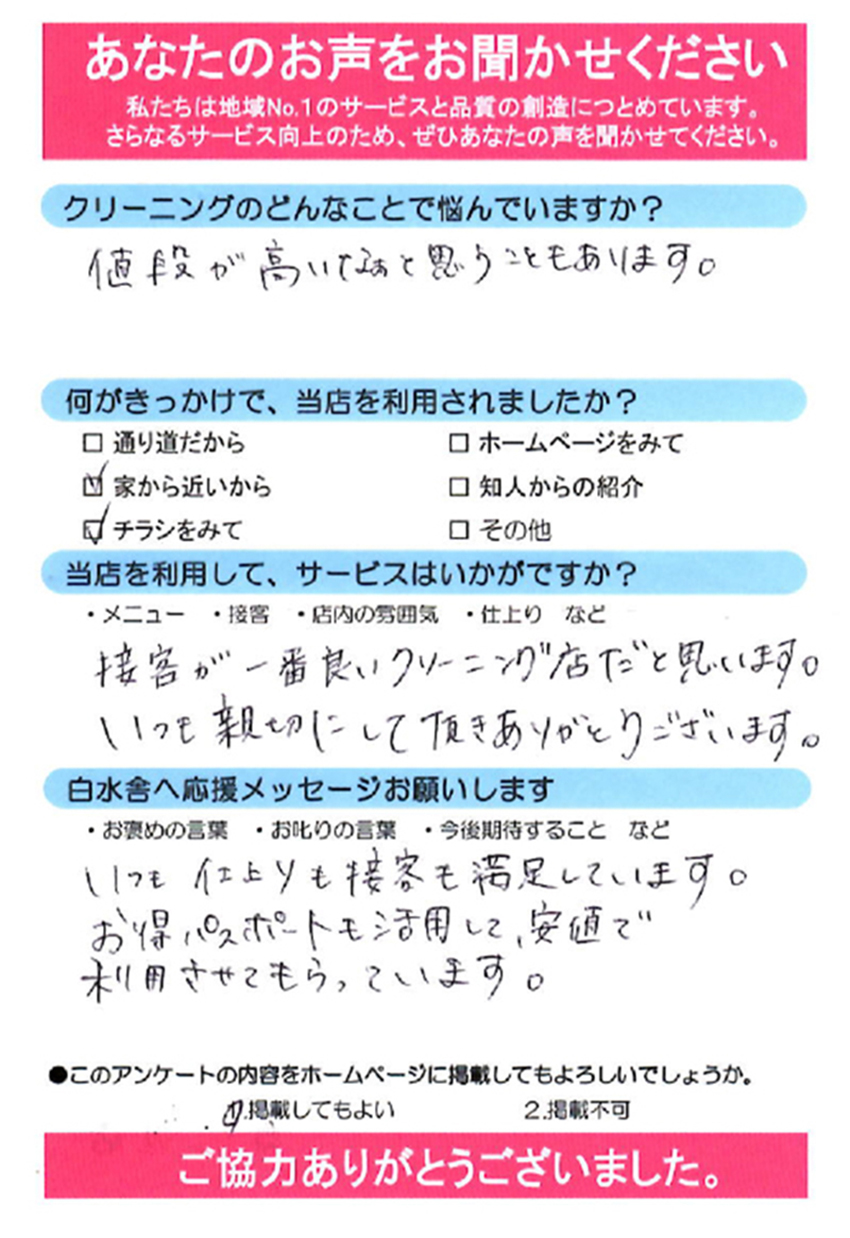 あなたのお声をお聞かせください
私たちは地域No.1のサービスと品質の創造につとめています。
さらなるサービス向上のため、ぜひあなたの声を聞かせてください。
クリーニングのどんなことで悩んでいますか？
値段が高いなぁと思うこともあります。
何がきっかけで、当店を利用されましたか？
□ 通り道だから　□ ホームページをみて
☑ 家から近いから　□ 知人からの紹介
☑ チラシをみて　□ その他
当店を利用して、サービスはいかがですか？
・メニュー　・接客　・店内の雰囲気　・仕上り　など
接客が一番良いクリーニング店だと思います。
いつも親切にして頂きありがとうございます。
白水舎へ応援メッセージお願いします
・お褒めの言葉　・お叱りの言葉　・今後期待すること　など
いつも仕上りも接客も満足しています。
お得パスポートも活用して、安値で
利用させてもらっています。
●このアンケートの内容をホームページに掲載してもよろしいでしょうか。
1.掲載してもよい　2.掲載不可
ご協力ありがとうございました。